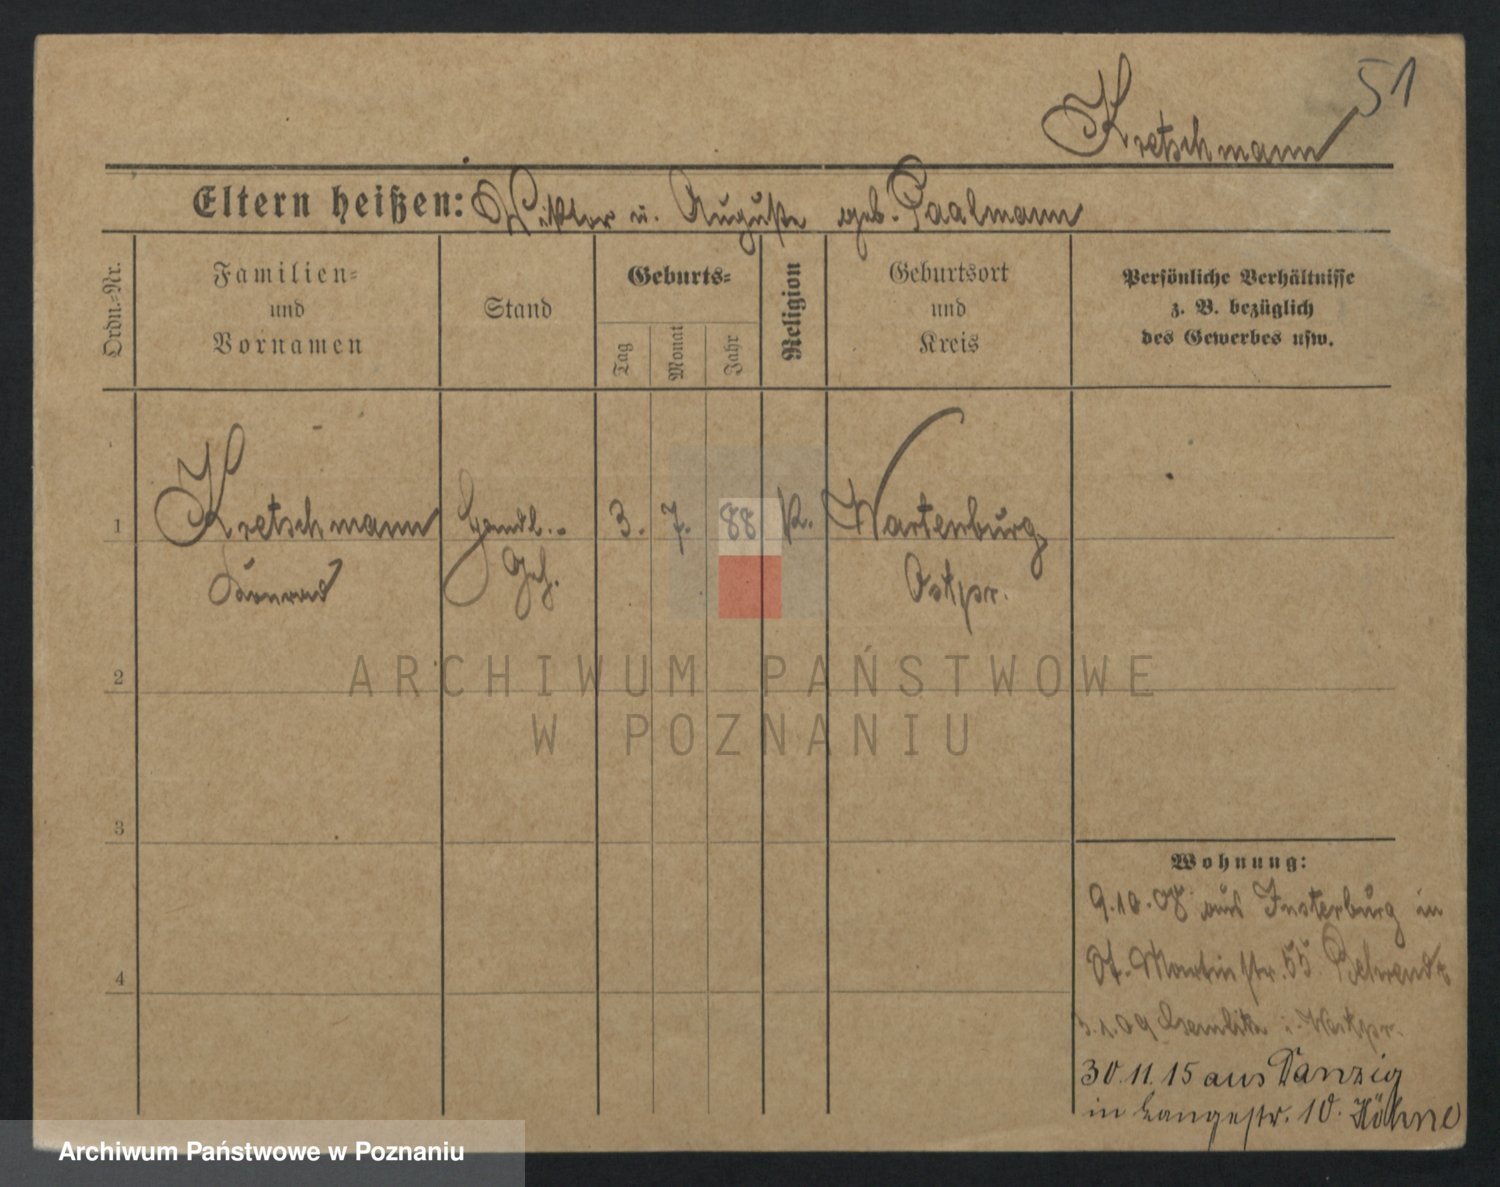 51
Kretschmann
Eltern heißen: Viktor u. Auguste geb. Paalmann
Ordn.-Nr.
Familien-
und
Vornamen
Stand
Geburts-
Tag
Monat
Jahr
Religion
Geburtsort
und
Kreis
Persönliche Verhältnisse
z. B. bezüglich
des Gewerbes usw.
1 Kretschmann Handl.- 3. 7. 88 K. Wartenburg
Konrad Geh. Ostpr.
2
ARCHIWUM PAŃSTWOWE
W POZNANIU
3
4
Wohnung:
9.10.08 aus Insterburg in
St. Martinstr. 55
3.1.09 i. Westpr.
30.11.15 aus Danzig
in Langestr. 10. Höhne
Archiwum Państwowe w Poznaniu